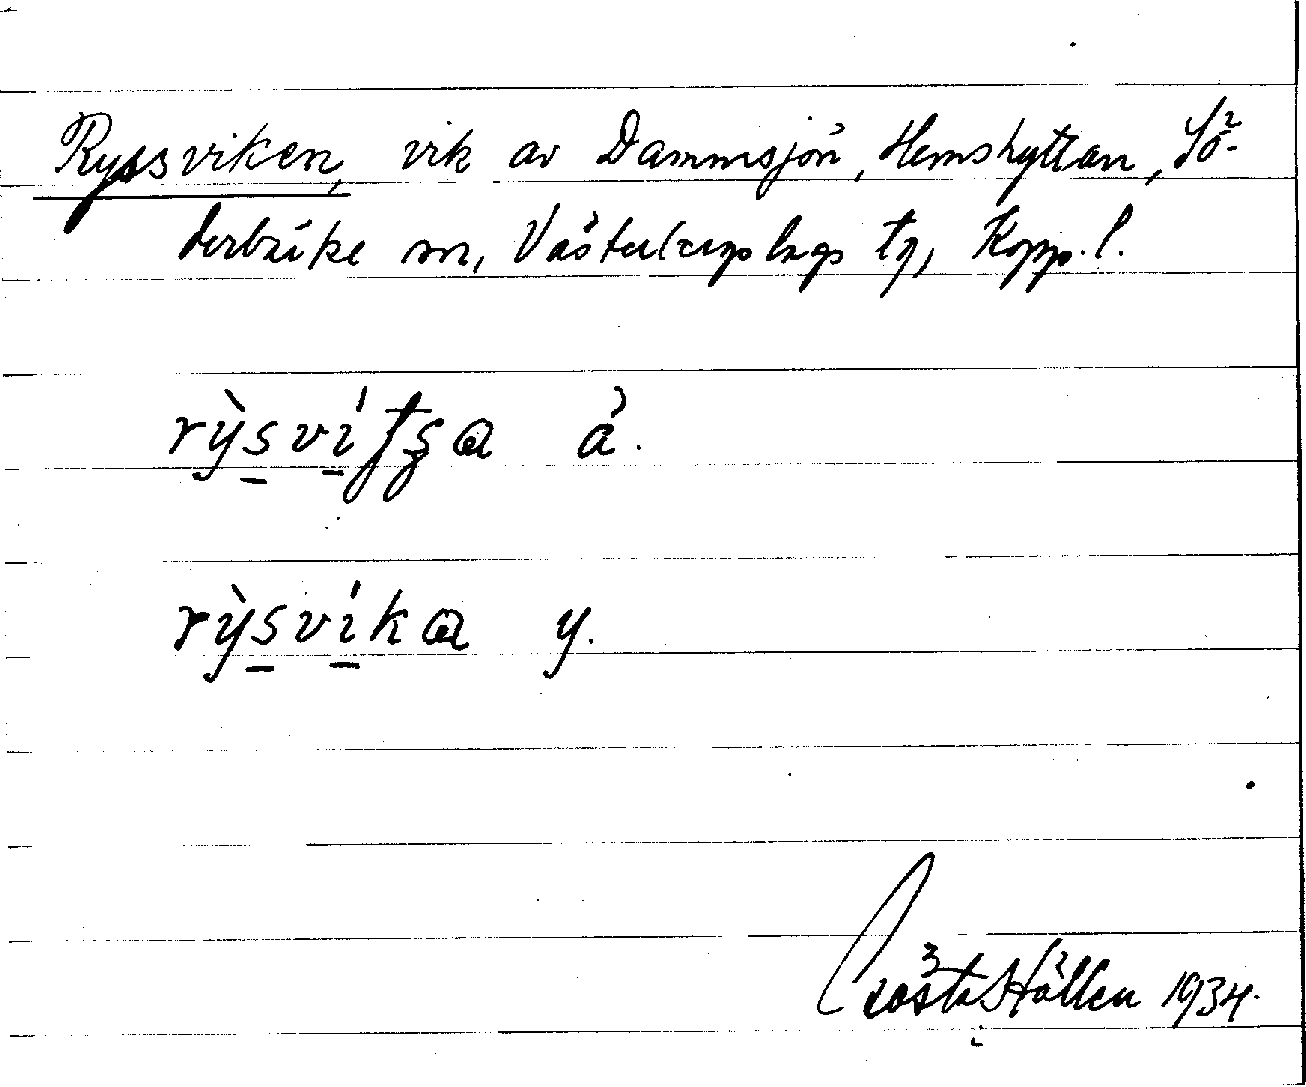 Ryssviken, vik av Dammsjön, Hemshyttan, Sö-
derbärke sn, Västerbergslags tg, Kopp. l.
rỳsvi̍tʂa ä.
rỳsvi̍ka y.
Gösta Hållen 1934.